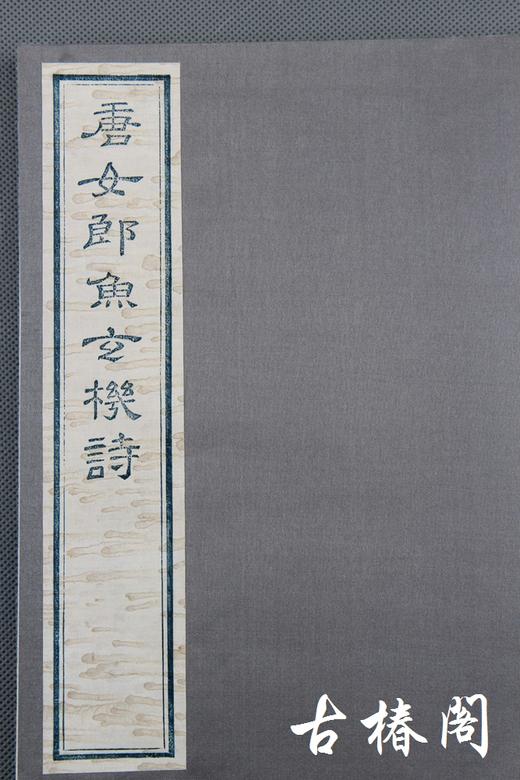 唐女郎魚玄機詩
古椿閣